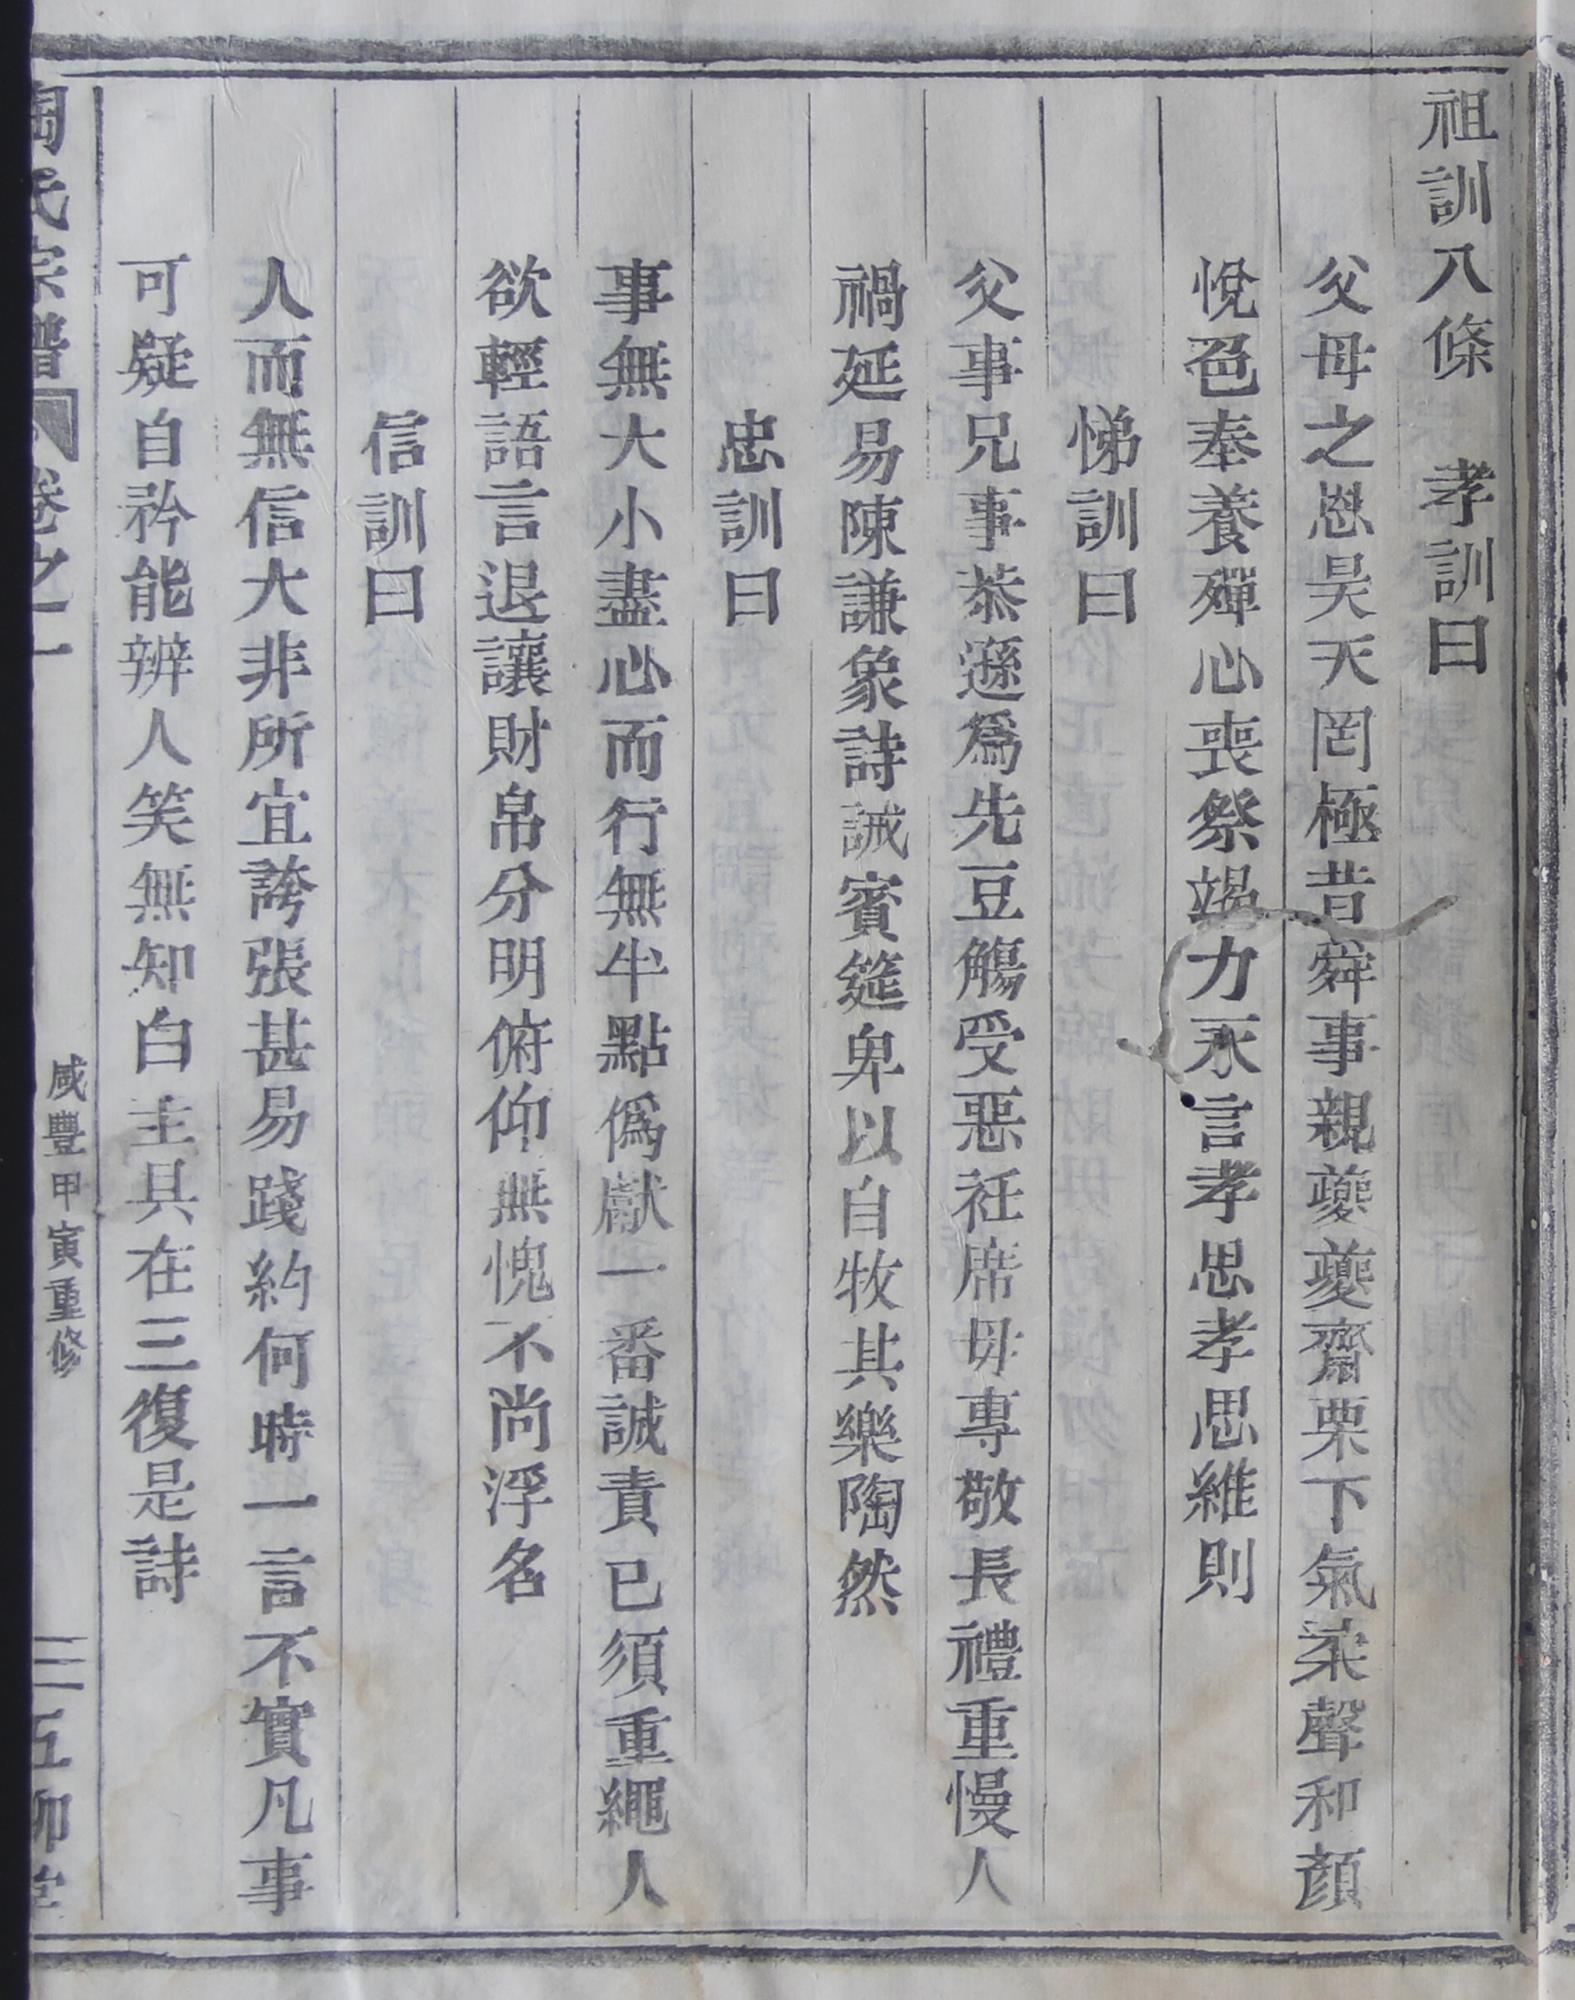 祖訓八條　孝訓曰
父母之恩昊天罔極昔舜事親夔夔齋栗下氣柔聲和顏
悅色奉養殫心喪祭竭力永言孝思孝思維則
悌訓曰
父事兄事恭遜爲先豆觴受惡衽席毋專敬長禮重慢人
禍延易陳謙象詩誡賓筵卑以自牧其樂陶然
忠訓曰
事無大小盡心而行無半點僞獻一番誠責已須重繩人
欲輕語言退讓財帛分明俯仰無愧不尚浮名
信訓曰
人而無信大非所宜誇張甚易踐約何時一言不實凡事
可疑自矜能辨人笑無知白圭具在三復是詩
陶氏宗譜 卷之一 咸豐甲寅重修 三 五柳堂